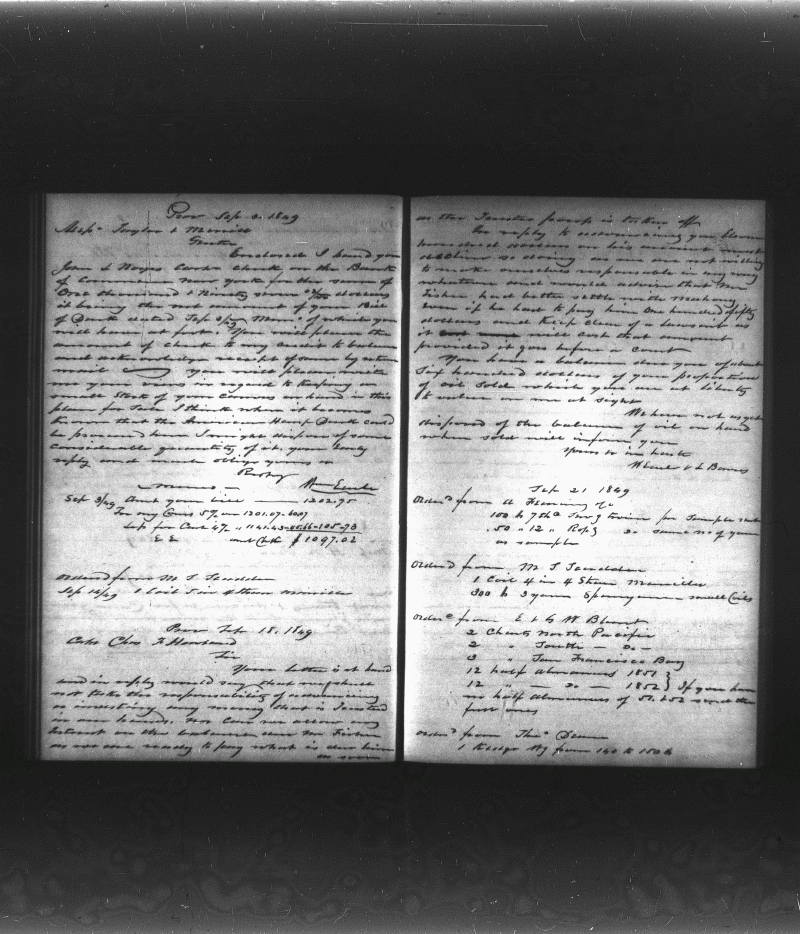 Prov Sep 3. 1849
Messrs Taylor & Merrill
Gents
Enclosed I hand you
John L Noyes Cash check on the Bank
of Commerce New york for the sum of
One thousand & Ninety seven 02/100 dollars
it being the amount of your Bill
of Duck dated Sep 3/49 of which you
will have at foot. You will please the
amount of check to my credit to balance
and acknowledge receipt of same by return
mail you will please write
me your views in regard to keeping a
small Stock of your Canvas on hand in this
place for Sale I think when it becomes
known that the American Hemp Duck could
be procured here I might dispose of some
considerable quantity of it. your early
reply and much oblige yours &
Resty
Wm Earle
Sep 3/49 Amt your bill 1202.95
5% on 1201.07
Cash 4% " 1141.45
E E amt Chk $1097.02
Ordered from M. S.
Sep 14/49 1 Coil 5 in 4 Stran manilla
Prov Sep 18. 1849
Capt Chas Howland
Sir
Your letter is at hand
and in reply would say that we shall
not take the responsibility of advancing
or investing any money that is
in our hands. Nor can we allow any
Interest on the balance due Mr Fisher
as we are ready to pay what is due him
as soon
as the proof is taken off
In reply to advancing you Eleven
hundred dollars on his account must
decline so doing as we are not willing
to make ourselves responsible in any way
whatever and would advise that Mr
Fisher had better settle with
even if he has to pay him One hundred & fifty
dollars and keep clear of a lawsuit as
it will cost that amount
provided it goes before a Court
You have a balance due you of about
Six hundred dollars of your proportion
of oil Sold which you are at liberty
to value on me at sight
We have not as yet
disposed of the balance of oil on hand
when sold will inform you
yours & in haste
Sep 21 1849
Orderd from A Fleming &Co
100 lb 7 thd Sewg twine per Sample
50 " 12 " Ropg do same no of yarn
as sample
Orderd from M S
1 Coil 4 in 4 Stran Manilla
300 lb 3 yarn Spunyarn small Coils
Orderd from E & G W Blunt
2 Charts North Pacific
2 " South - do -
3 " San Francisco Bay
12 half Almanacs 1851
12 " do - 1852 If you have
no half Almanacs of 51 & 52 send the
full ones
Orderd from Thos
1 Kedge Wg from 140 to 150 lb